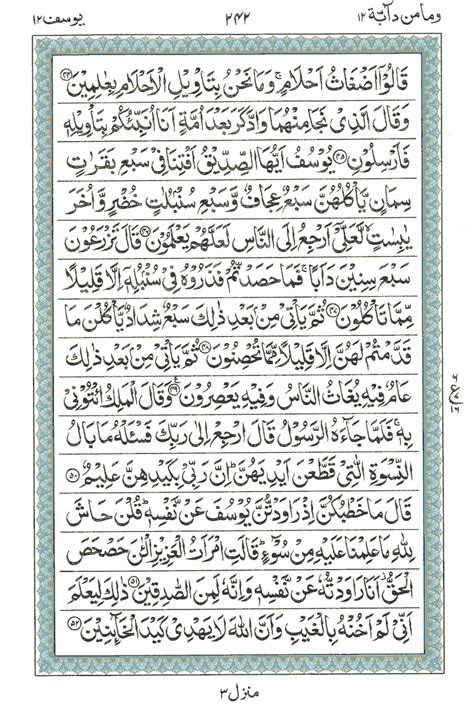 وما من دآبة ١٢ ٢٤٢ يوسف ١٢
قَالُوْۤا اَضْغَاثُ اَحْلَامٍ ۚ وَمَا نَحْنُ بِتَاْوِيْلِ الْاَحْلَامِ بِعٰلِمِيْنَ ۝۴۴
وَقَالَ الَّذِيْ نَجَا مِنْهُمَا وَادَّكَرَ بَعْدَ اُمَّةٍ اَنَا اُنَبِّئُكُمْ بِتَاْوِيْلِهٖ
فَاَرْسِلُوْنِ ۝۴۵ يُوْسُفُ اَيُّهَا الصِّدِّيْقُ اَفْتِنَا فِيْ سَبْعِ بَقَرٰتٍ
سِمَانٍ يَّاْكُلُهُنَّ سَبْعٌ عِجَافٌ وَّسَبْعِ سُنْۢبُلٰتٍ خُضْرٍ وَّاُخَرَ
يٰبِسٰتٍ ۙ لَّعَلِّيْۤ اَرْجِعُ اِلَى النَّاسِ لَعَلَّهُمْ يَعْلَمُوْنَ ۝۴۶ قَالَ تَزْرَعُوْنَ
سَبْعَ سِنِيْنَ دَاَبًا ۚ فَمَا حَصَدْتُّمْ فَذَرُوْهُ فِيْ سُنْۢبُلِهٖۤ اِلَّا قَلِيْلًا
مِّمَّا تَاْكُلُوْنَ ۝۴۷ ثُمَّ يَاْتِيْ مِنْۢ بَعْدِ ذٰلِكَ سَبْعٌ شِدَادٌ يَّاْكُلْنَ مَا
قَدَّمْتُمْ لَهُنَّ اِلَّا قَلِيْلًا مِّمَّا تُحْصِنُوْنَ ۝۴۸ ثُمَّ يَاْتِيْ مِنْۢ بَعْدِ ذٰلِكَ
عَامٌ فِيْهِ يُغَاثُ النَّاسُ وَفِيْهِ يَعْصِرُوْنَ ۝۴۹ وَقَالَ الْمَلِكُ ائْتُوْنِيْ
بِهٖ ۚ فَلَمَّا جَآءَهُ الرَّسُوْلُ قَالَ ارْجِعْ اِلٰى رَبِّكَ فَسْـَٔلْهُ مَا بَالُ
النِّسْوَةِ الّٰتِيْ قَطَّعْنَ اَيْدِيَهُنَّ ؕ اِنَّ رَبِّيْ بِكَيْدِهِنَّ عَلِيْمٌ ۝۵۰
قَالَ مَا خَطْبُكُنَّ اِذْ رَاوَدْتُّنَّ يُوْسُفَ عَنْ نَّفْسِهٖ ؕ قُلْنَ حَاشَ
لِلّٰهِ مَا عَلِمْنَا عَلَيْهِ مِنْ سُوْٓءٍ ؕ قَالَتِ امْرَاَتُ الْعَزِيْزِ الْـٰٔنَ حَصْحَصَ
الْحَقُّ ؗ اَنَا رَاوَدْتُّهٗ عَنْ نَّفْسِهٖ وَاِنَّهٗ لَمِنَ الصّٰدِقِيْنَ ۝۵۱ ذٰلِكَ لِيَعْلَمَ
اَنِّيْ لَمْ اَخُنْهُ بِالْغَيْبِ وَاَنَّ اللّٰهَ لَا يَهْدِيْ كَيْدَ الْخَآئِنِيْنَ ۝۵۲
منزل ٣